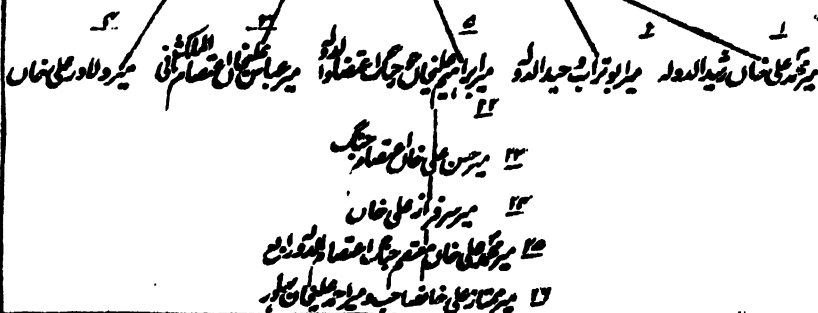 ۱ ۲ ۵ ۳ ۴
میر محمد علی خاں رشید الدولہ میر ابو تراب حید الدولہ میر ابراہیم علیخاں جنگ اعتضاد الدولہ میر عباس علیخاں اعتصام الملک ثانی میر دلاور علی خاں
۲۲
۲۳ میر حسن علی خاں اعتصام جنگ
۲۴ میر سرفراز علی خاں
۲۵ میر محمد علی خاں معتصم جنگ اعتصام الدولہ رابع
۲۶ میر ممتاز علی خانصاحب و میر احمد علیخاں بہادر